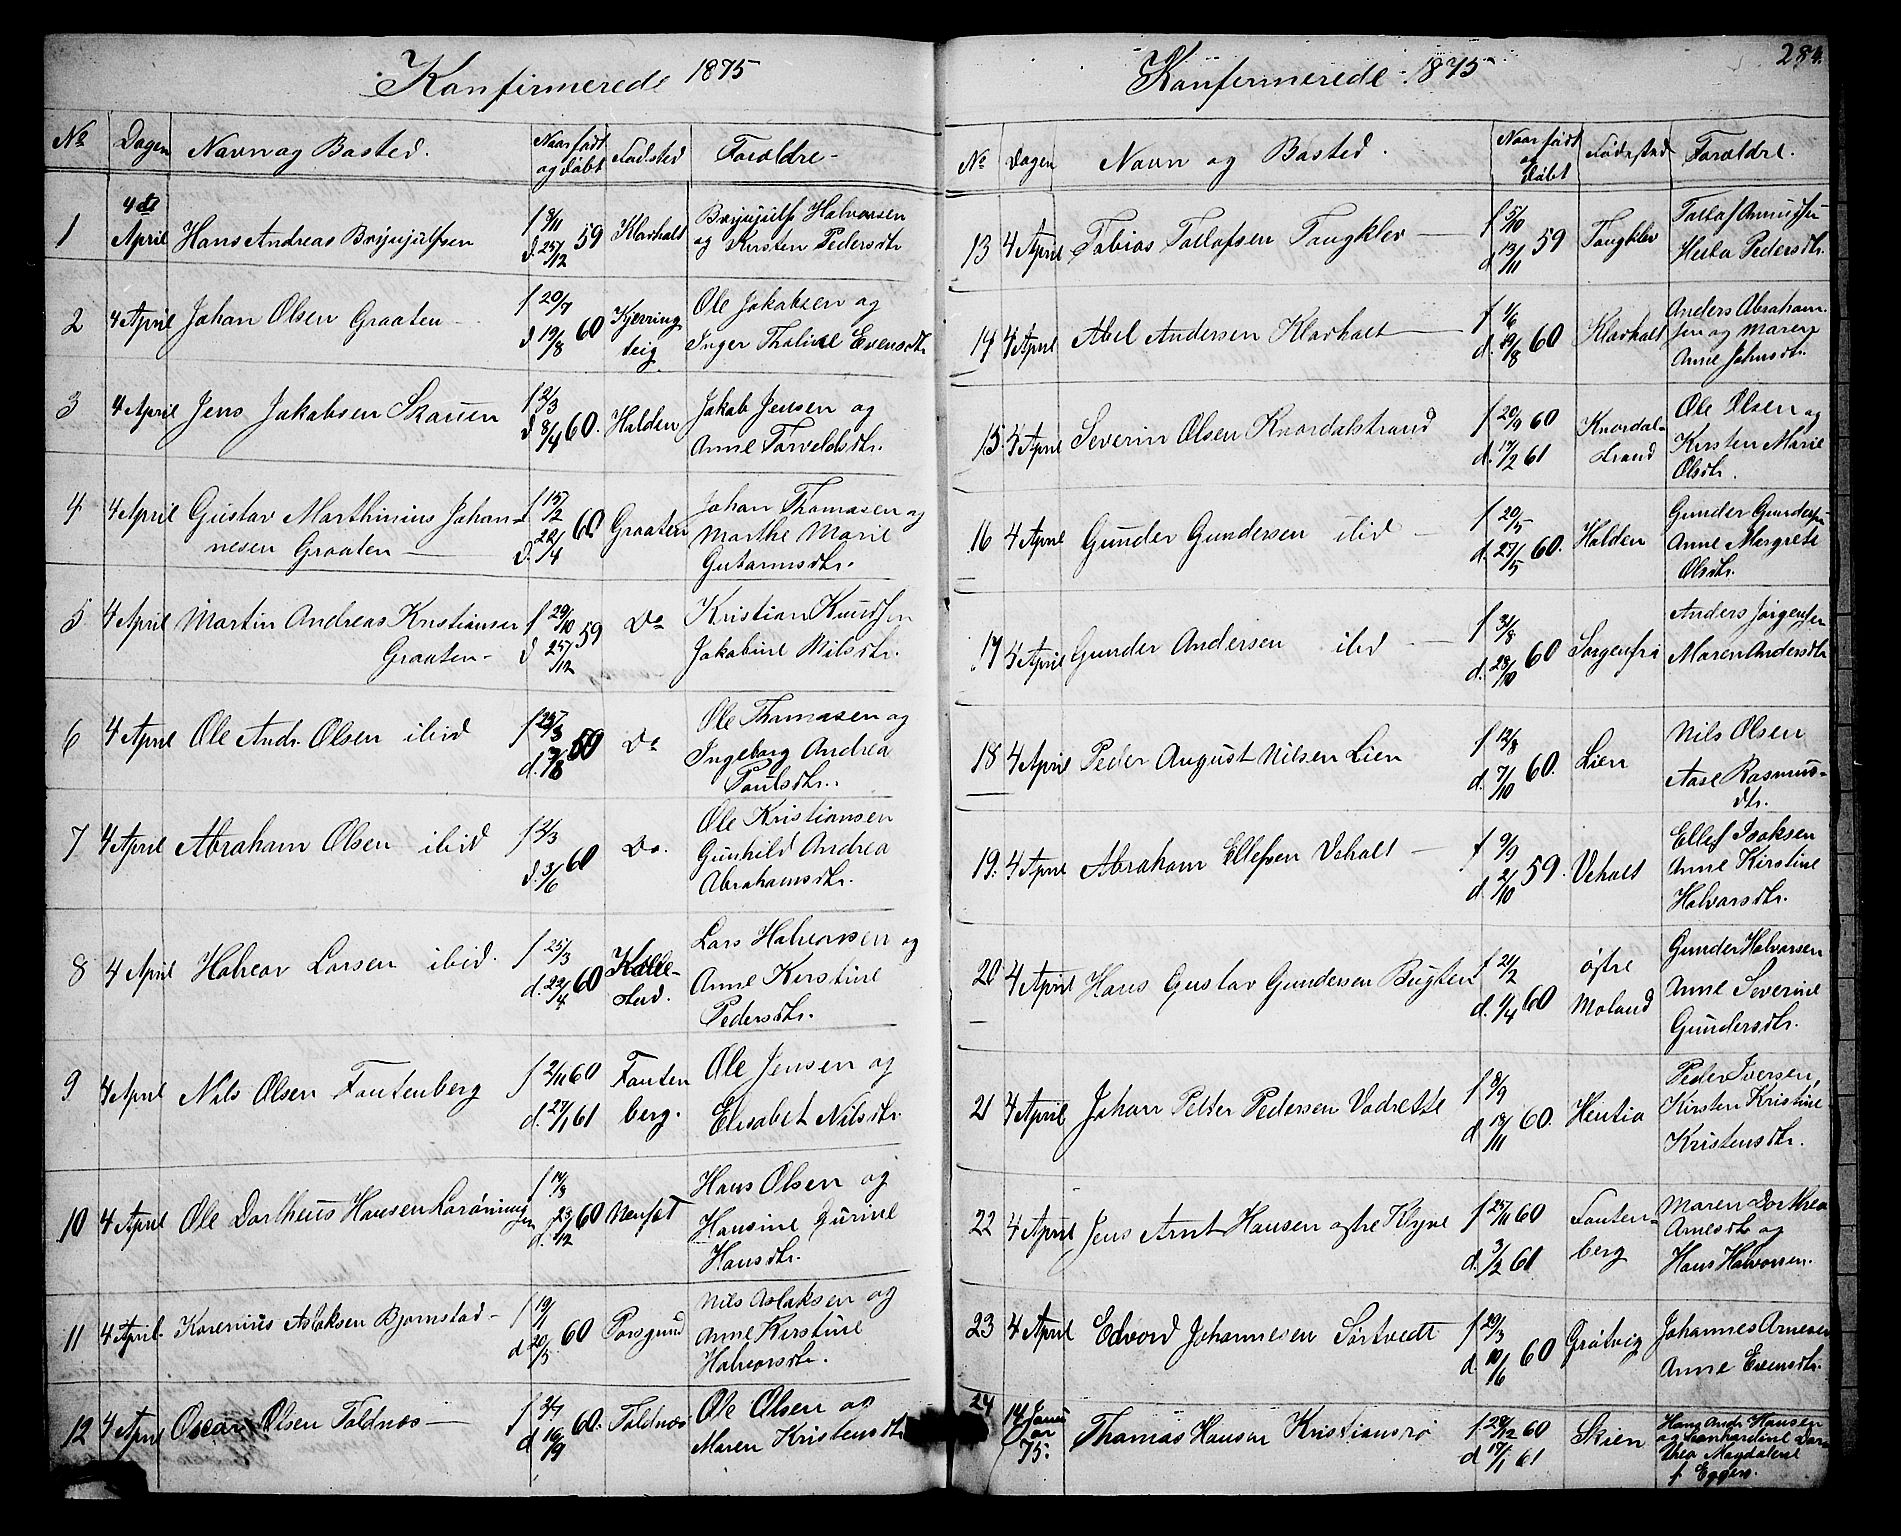 Konfirmerede 1875
No Dagen Navn og Bosted. Naar født og døbt Fødsted Forældre
1 4de April Hans Andreas Bryjulfsen f 8/11 d. 25/12 59 Klovholt Bryjulf Halvorsen og Kirsten Pedersdtr
2 4 April Johan Olsen Graaten f 20/7 d 19/8 60 Kjerringteig Ole Jakobsen og Inger Thaline Evensdtr
3 4 April Jens Jakobsen Skauen f 2/3 d 8/4 60. Halden Jakob Jensen og Anne Torvoldsdtr.
4 4 April Gustav Marthinius Johannesen Graaten f 15/2 d. 22/4 60 Graaten Johan Thomasen og Marthe Marie
5 4 April Martin Andreas Kristiansen Graaten f 29/10 d 25/12 59 Do Kristian Knudsen Jakobine Nilsdtr.
6 4 April Ole Andr. Olsen ibid f 25/3 d. /8 Do Ole Thomasen og Ingeborg Andrea Poulsdtr.
7 4 April Abraham Olsen ibid f 2/3 d. 3/6 60 Do. Ole Kristiansen Gunhild Andrea Abrahamsdtr.
8 4 April Halvor Larsen ibid. f 25/3 d. 22/4 60 Lars Halvorsen og Anne Kirstine Pedersdtr.
9 4 April Nils Olsen Fontenberg f 2/11 60 d. 27/1 61 Fontenberg. Ole Jensen og Elisabet Nilsdtr.
10 4 April Ole Dortheus Hansen f 14/8 d. 23/12 60 Hans Olsen og Hansine Gurine Hansdtr.
11 4 April. Korenius Aslaksen Bjørnstad f 19/1 d 20/5 60 Porsgrund Nils Aslaksen og Anne Kirstine Halvorsdtr.
12 4 April Oscar Olsen Foldnos f 3/7 d 16/9 60. Foldnos Ole Olsen og Maren Kristensdtr
Konfirmerede 1875 284.
No Dagen Navn og Bosted. Naar født og døbt Fødested Forældre.
13 4 April Tobias Tollofsen Tangklev f 5/10 d 13/11 59 Tangklev Tollof Amundsen Pedersdtr.
14 4 April Abel Andersen Klovholt f 1/6 d. 29/8 60 Klovholt Anders Abrahamsen og Maren Anne Johnsdtr.
15. 4 April Severin Olsen Knordalstrand f 20/9 60 d. 17/2 61 Knordalstrand Ole Olsen og Kirsten Marie Olsdtr.
16 4 April Gunder Gundersen ibid f 20/5 d. 27/5 60. Halden Gunder Gundersen Anne Margrete Olsdtr.
17 4 April Gunder Andersen ibid f 31/8 d. 28/10 60 Sorgenfri Anders Jørgensen Maren Andersdtr
18 4 April Peder August Nilsen Lien f 12/8 d. 7/10 60. Lien Nils Olsen Aase Rasmusdtr.
19. 4 April Abraham Ellefsen Veholt f 9/9 d. 2/10 59. Veholt Ellef Isaksen Anne Kirstine Halvorsdtr.
20 4 April Hans Gustav Gundersen Bugten f 21/2 d. 1/4 60 Østre Moland Gunder Halvorsen Anne Severine Gundersdtr.
21 4 April Johan Peder Pedersen f 8/9 d. 17/11 60. Peder Iversen, Kirsten Kristine Kristensdtr.
22 4 April Jens Arnt Hansen østre Klyve f 25/11 60 d. 3/2 61 Fontenberg Maren Dorthea Arnesdtr og Hans Halvorsen.
23 4 April Edvard Johannesen Sortvedt f 29/3 d 10/6 60 Grøtvig Johannes Arnesen Anne Evensdtr.
24 14 Januar 75. Thomas Hansen Kristiansrø f. 28/12 60 d 17/1 61 Skien Hans Andr. Hansen og Leonhardine Dorothea Magdalene f. Eggers.